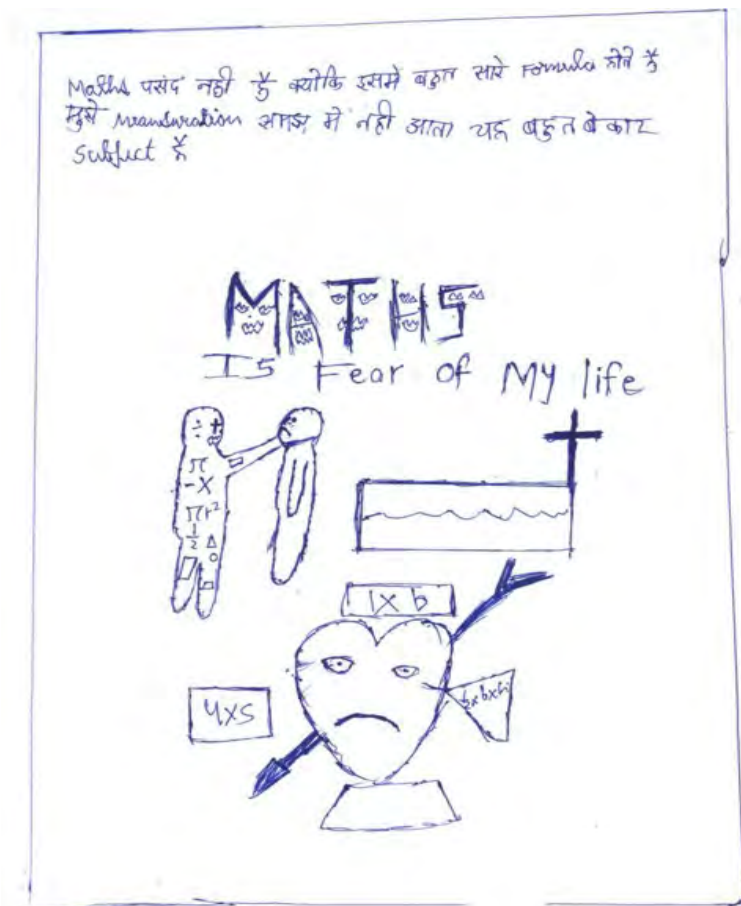 Maths पसंद नहीं है क्योकि इसमे बहुत सारे Formula होते है
मुझे mensuration समझ मे नही आता यह बहुत बेकार
Subject है
MATHS
Is Fear of My life
÷ +
π
-x
πr²
1/2 Δ
l x b
4xs